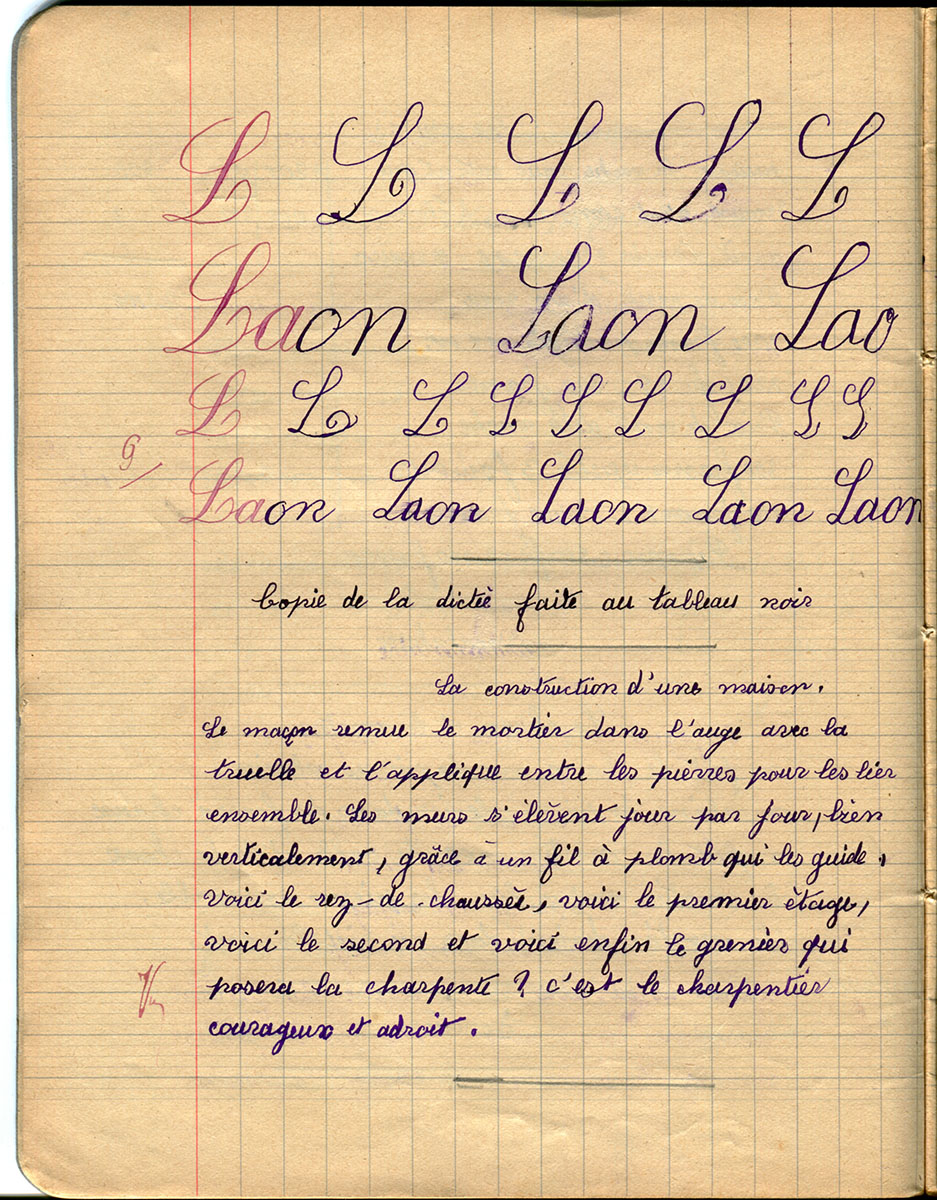 L L L L L
Laon Laon Lao
L L L L L L L L L
Laon Laon Laon Laon Laon
Copie de la dictée faite au tableau noir
La construction d'une maison.
Le maçon remue le mortier dans l'auge avec la
truelle et l'applique entre les pierres pour les lier
ensemble. Les murs s'élèvent jour par jour, bien
verticalement, grâce à un fil à plomb qui les guide,
voici le rez-de-chaussée, voici le premier étage,
voici le second et voici enfin le grenier qui
posera la charpente ? c'est le charpentier
courageux et adroit.